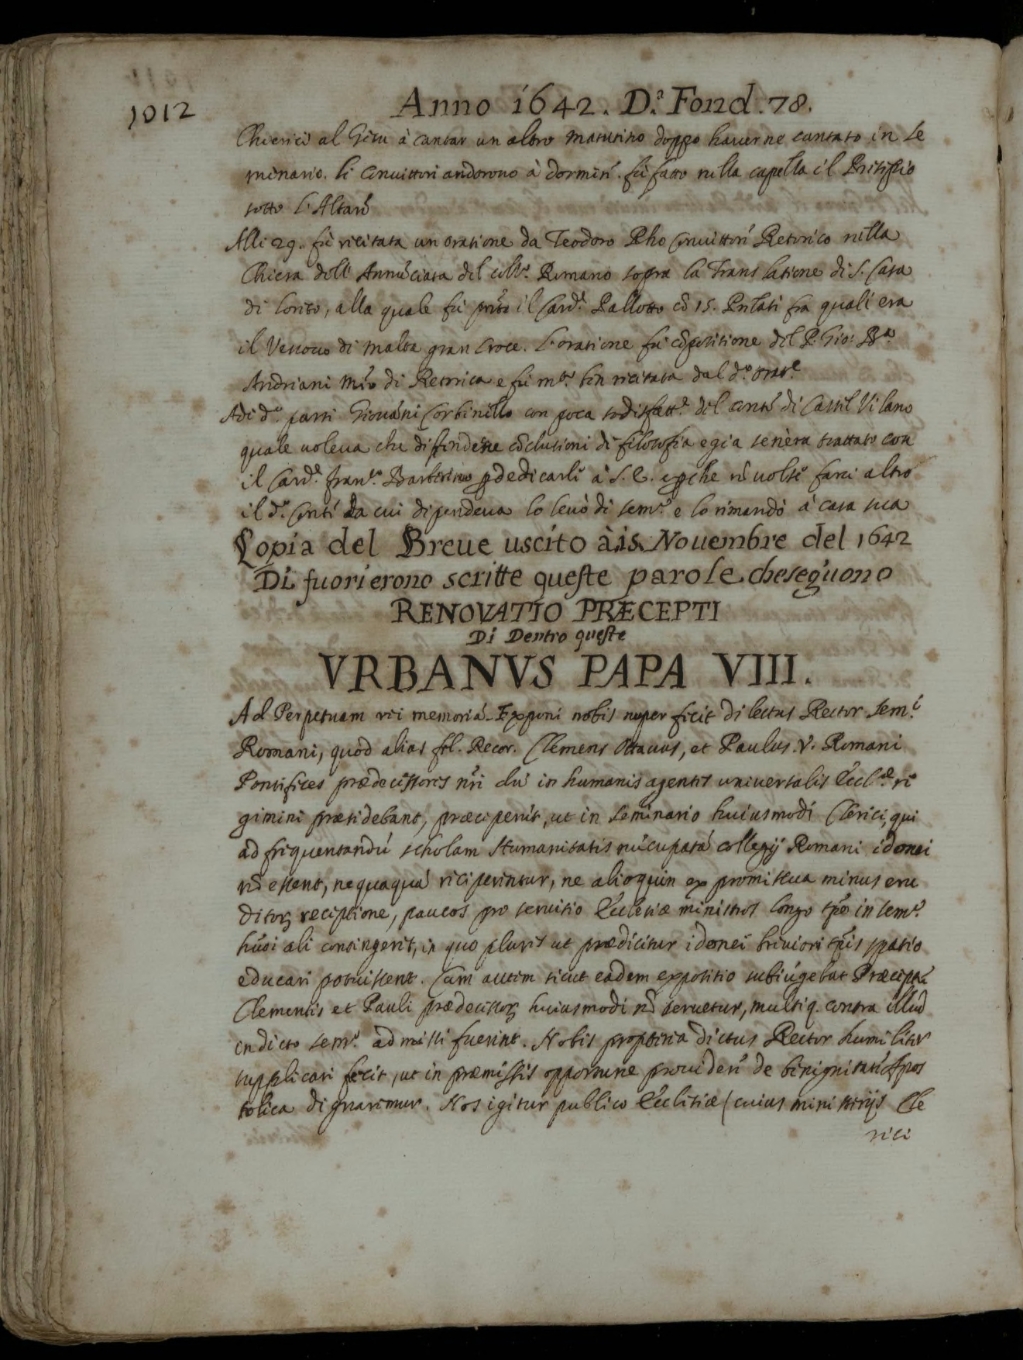 1012
Anno 1642. D.ª Fond. 78.
Chierici al Giesu à cantar un altro matutino doppo haverne cantato in Se
minario. li convittori andorono à dormire. fù fatto nella capella il Presepio
sotto l'Altare
Alli 29. fù recitata un oratione da Teodoro Pho Convittore Retorico nella
Chiesa dell' Annũciata del coll.º Romano sopra la Translatione di S. Casa
di Loreto, alla quale fù pñte il Card.le Pallotto cõ 15. Prelati fra quali era
il Vescovo di Malta gran Croce. l'oratione fù cõpositione del P. Gio: Bª
Andriani Mro di Retorica e fù m.to ben recitata dal d.º orat.e
Adi d.º parti Giovãni Corbinello con poca sodisfatt.e del conte di Castel Vilano
quale voleva che difendesse cõclusioni di filosofia e gia se n'era trattato con
il Card.le Fran.co Barberino p dedicarle à S. E. e pche nõ volse farci altro
il d.º Conte da cui dipendeva lo levò di sem.º e lo rimandò à casa sua
Copia del Breve uscito à is Novembre del 1642
Di fuori erono scritte queste parole che seguono
RENOVATIO PRÆCEPTI
Di Dentro queste
VRBANVS PAPA VIII.
Ad Perpetuam rei memoriã. Exponi nobis nuper fecit dilectus Rector Sem.i
Romani, quod alias fel. Recor. Clemens Octavus, et Paulus. V. Romani
Pontifices prædecessores nri dũ in humanis agentes universalis Eccl.æ re
gimini præsidebant, præceperũt, ut in Seminario huiusmodi Clerici, qui
ad frequentandũ scholam Humanitatis nũcupatã collegij Romani idonei
nõ essent, nequaquã reciperentur, ne alioquin ex promiscua minus eru
ditoꝝ receptione, paucos pro servitio Ecclesiæ ministros longo tpe in sem.º
huõi ali contingeret, in quo plures ut prædicitur idonei breviori tpis spatio
educari potuissent. Cum autem sicut eadem expositio subiũgebat Præcepta
Clementis et Pauli prædecessoꝝ huiusmodi nõ servetur, multiq. contra illud
in dicto sem.º admissi fuerint. Nobis propterea dictus Rector humiliter
supplicari fecit, ut in præmissis opportune providere de benignitate Apos
tolica dignaremur. Nos igitur publico Ecclesiæ (cuius ministerijs Cle
rici